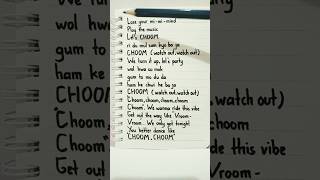 Lose your mi-mi-mind
Play the music
Let's CHOOM
ri du mul sum kyo bo ja
CHOOM (watch out, watch out)
We turn it up, let's party
wol hwa su mok
gum to mo du da
ham ke chui he bo ja
CHOOM (watch out, watch out)
Choom, choom, choom, choom
Choom.. We wanna ride this vibe
Get out the way like Vroom-
Vroom.. We only got tonight
You better dance like
"CHOOM, CHOOM"